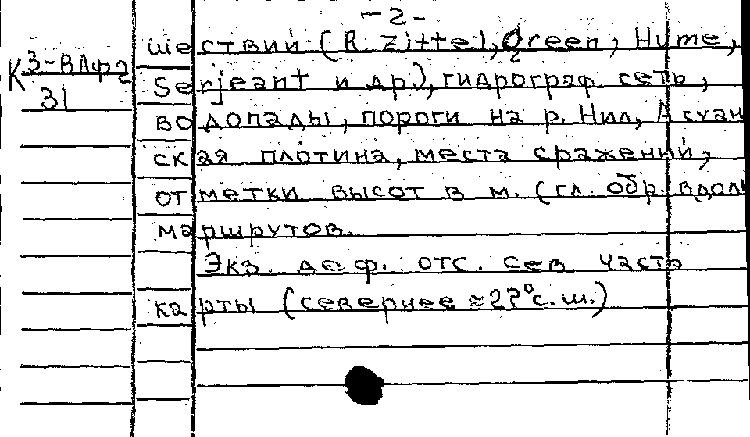 -2-
К 3-ВАф2
31
шествий (R. Zittel, Green, Hume,
Serjeant и др.), гидрограф. сеть,
водопады, пороги на р. Нил, Асуан
ская плотина, места сражений,
отметки высот в м. (гл. обр. вдоль
маршрутов.
Экз. деф. отс. сев часть
карты (севернее ≈22° с.ш.)